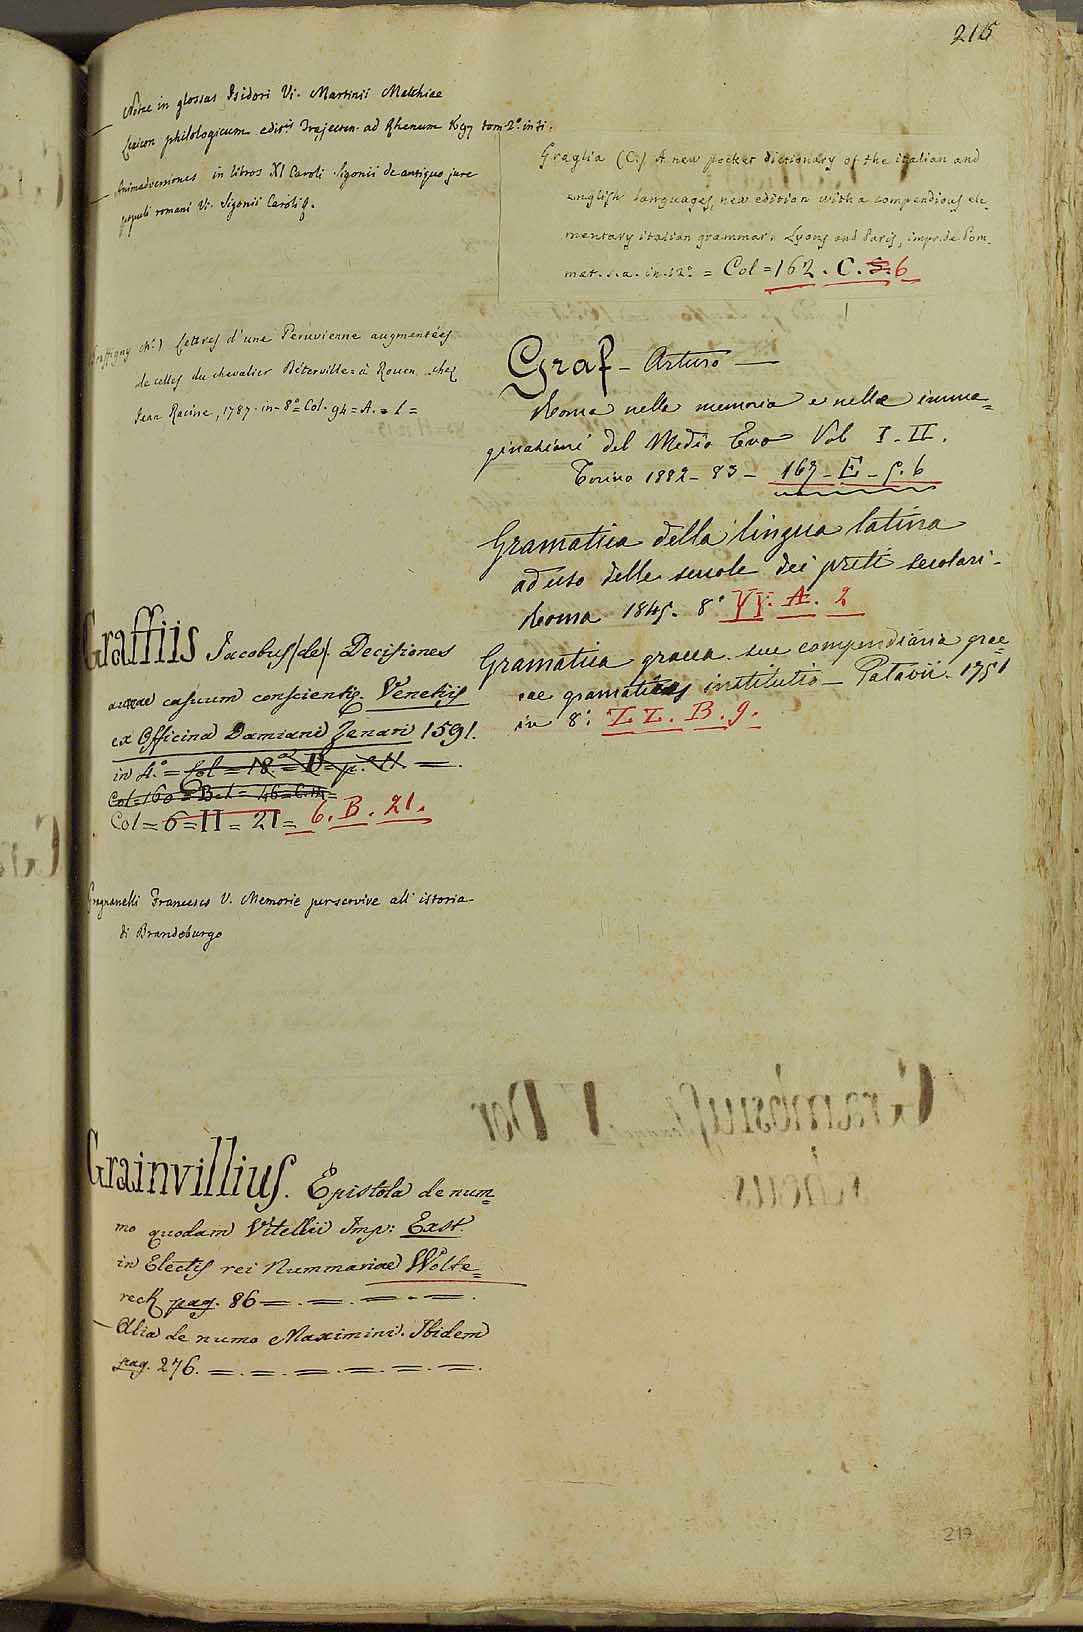 215
Notae in glossas Isidori Vi. Martinii Matthiae
Lexicon philologicum editis Trajecten. ad Rhenum 1697 tom. 2.º in ti.
Animadversiones in libros XI Caroli Sigonii de antiquo jure
populi romani Vi. Sigonii Caroli
Graffigny (M.e) Lettres d'une Peruvienne augmentées
de celles du chevalier Déterville = à Rouen chez
Jean Racine, 1787. in-8º = Col. 94 = A. = 1 =
Graffiis Jacobus (de). Decisiones
aureae casuum conscientię. Venetiis
ex Officina Damiani Zenari 1591.
in 4.º = Col = 18.
Col = 160 = B. 1 = 46 =
Col = 6 = II = 21 = 6. B. 21.
Gragnanelli Francesco V. Memorie per servire all' istoria
di Brandeburgo
Grainvillius. Epistola de num=
mo quodam Vitellii Imp: Exst.
in Electis rei Nummariae Wolte=
reck pag. 86 = . = . = . = .
Alia de numo Maximini. Ibidem
pag. 276. = . = . = . = . = . = .
Graglia (C.) A new pocket dictionary of the italian and
english languages, new edition with a compendious ele-
mentary italian grammar. Lyons and Paris, impr. de Pom-
mat. s.a. in-12º = Col = 162. C. S. 6
Graf - Arturo —
Roma nella memoria e nelle imma=
ginazioni del Medio Evo Vol I-II.
Torino 1882-83 - 167 - E - 5. 6
Gramatica della lingua latina
ad uso delle scuole dei preti secolari.
Roma 1845. 8º YY. A. 2
Gramatica graeca sue compendiaria grae=
cae gramatices institutio - Patavii. 1751
in 8º: ZZ. B. 9.
217